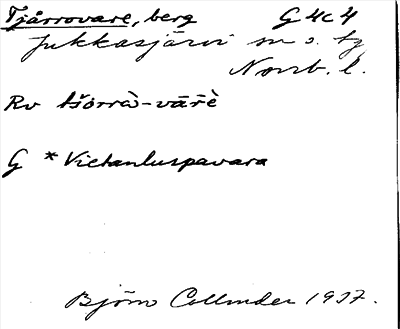 Tjårrovare, berg G 4c 4
Jukkasjärvi sn o. tg
Norrb. l.
Rv tšorrὰ-vārὲ
G * Vietanluspavara
Björn Collinder 1937.